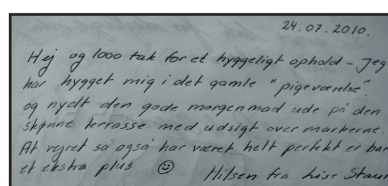 24.07.2010.
Hej og 1000 tak for et hyggeligt ophold - Jeg
har hygget mig i det gamle "pigeværelse"
og nydt den gode morgenmad ude på den
skønne terrasse med udsigt over markerne.
At vejret så også har været helt perfekt er bar
et ekstra plus ☺
Hilsen fra Lise